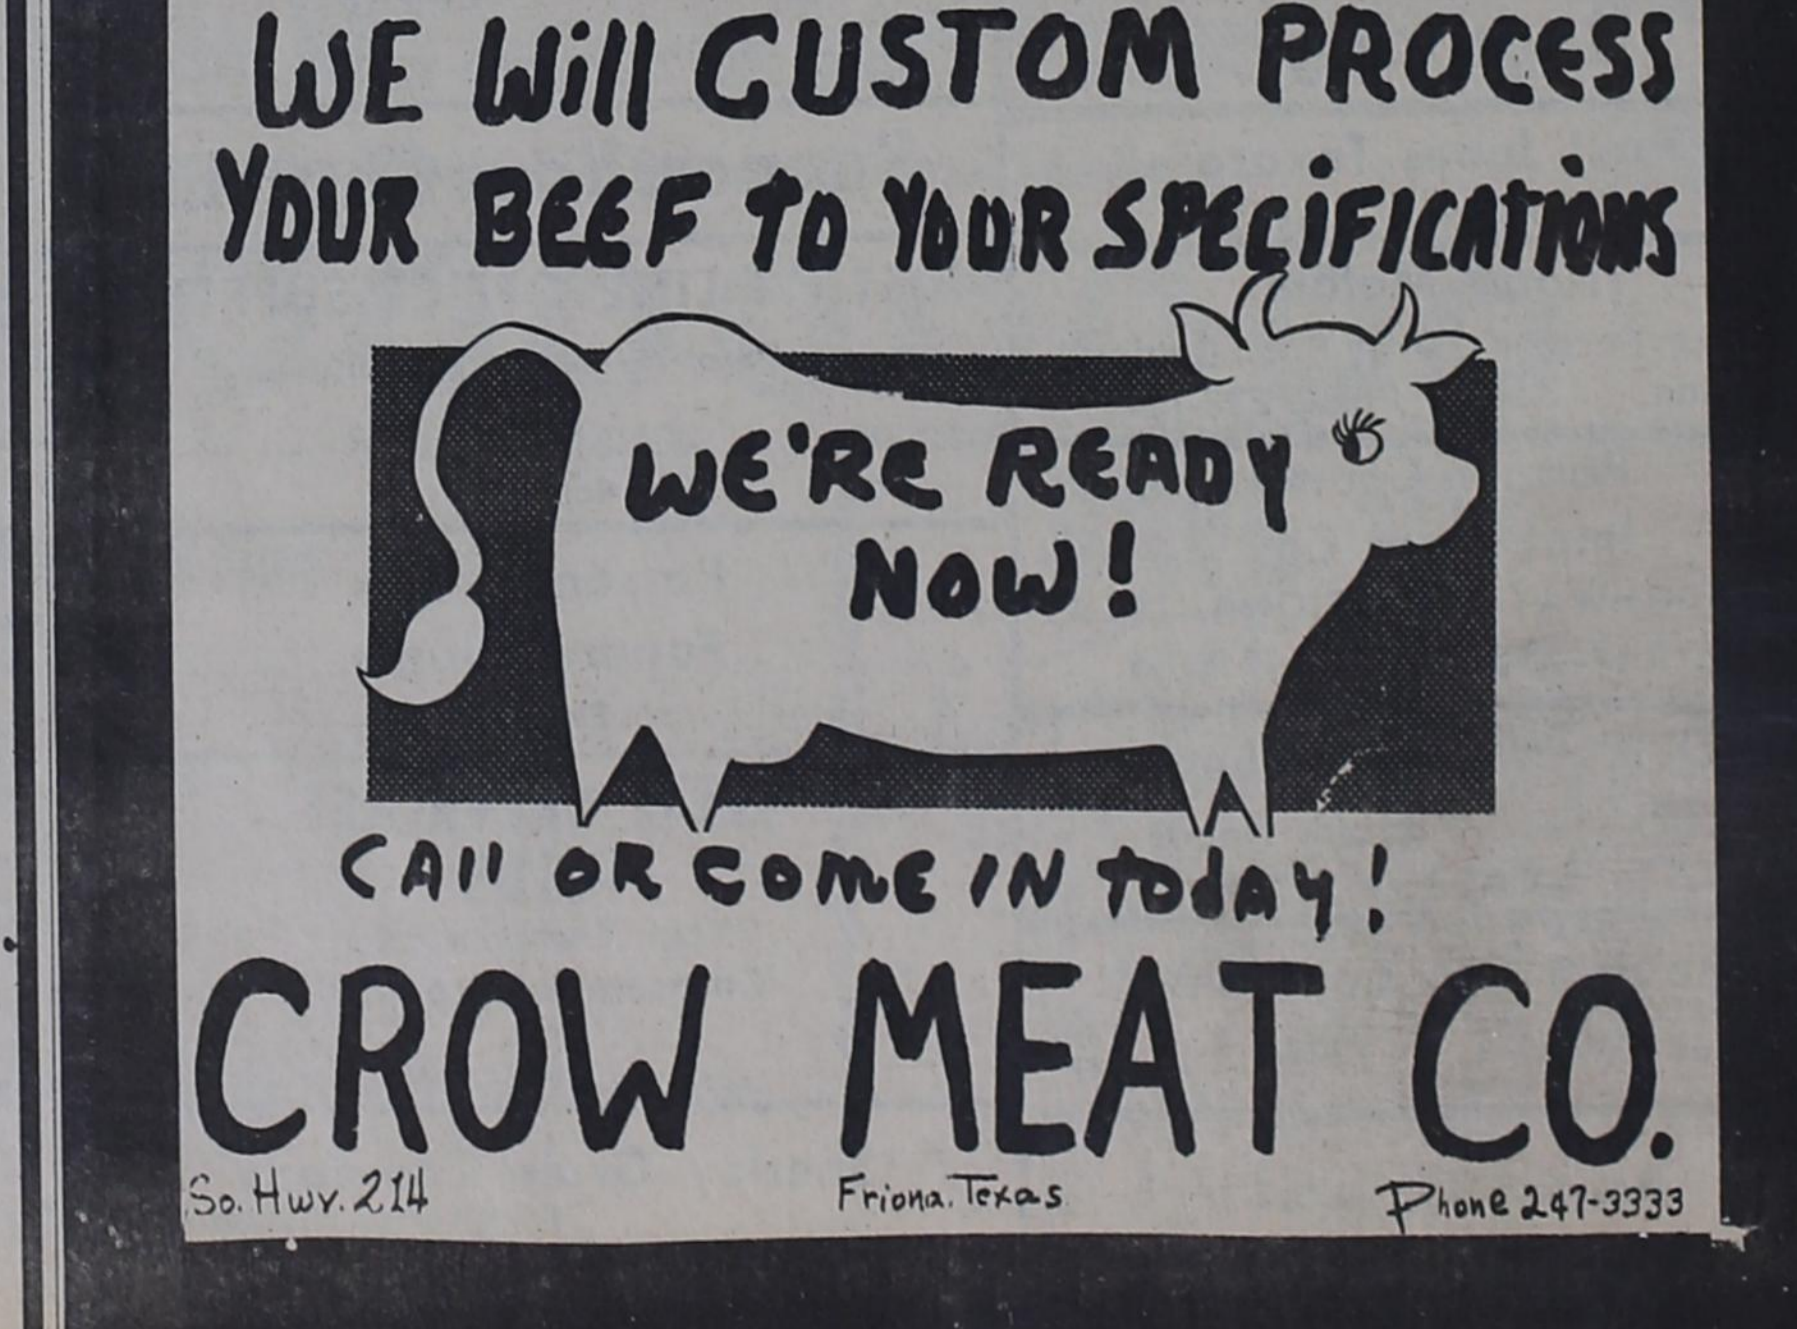 WE Will CUSTOM PROCESS
YOUR BEEF TO YOUR SPECiFICATiONS
WE'RE READY
NOW!
CAll OR COME IN TODAY!
CROW MEAT CO.
So. Hwy. 214 Friona, Texas Phone 247-3333